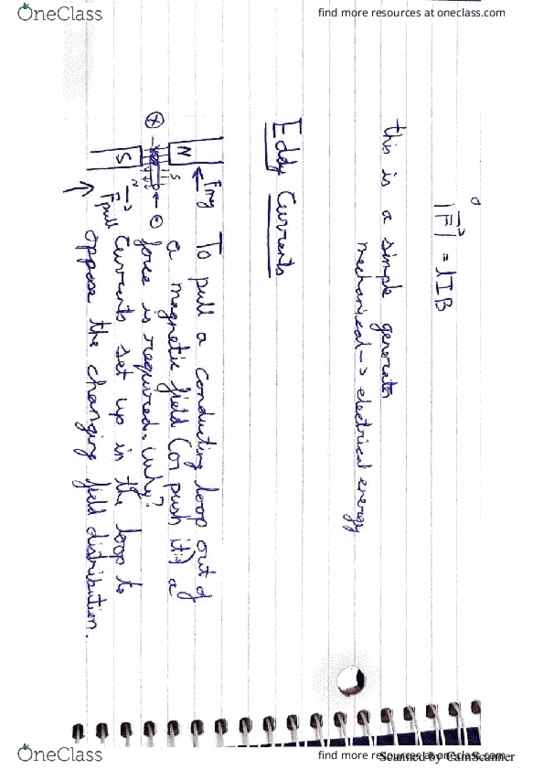 OneClass
find more resources at oneclass.com
|F| = lIB
this is a simple generator
mechanical → electrical energy
Eddy Currents
N
S
S
N
Fmg
Fpull
To pull a conducting loop out of
a magnetic field (or push it) a
force is required. Why?
Currents set up in the loop to
oppose the changing field distribution.
OneClass
find more resources at oneclass.com
Scanned by CamScanner